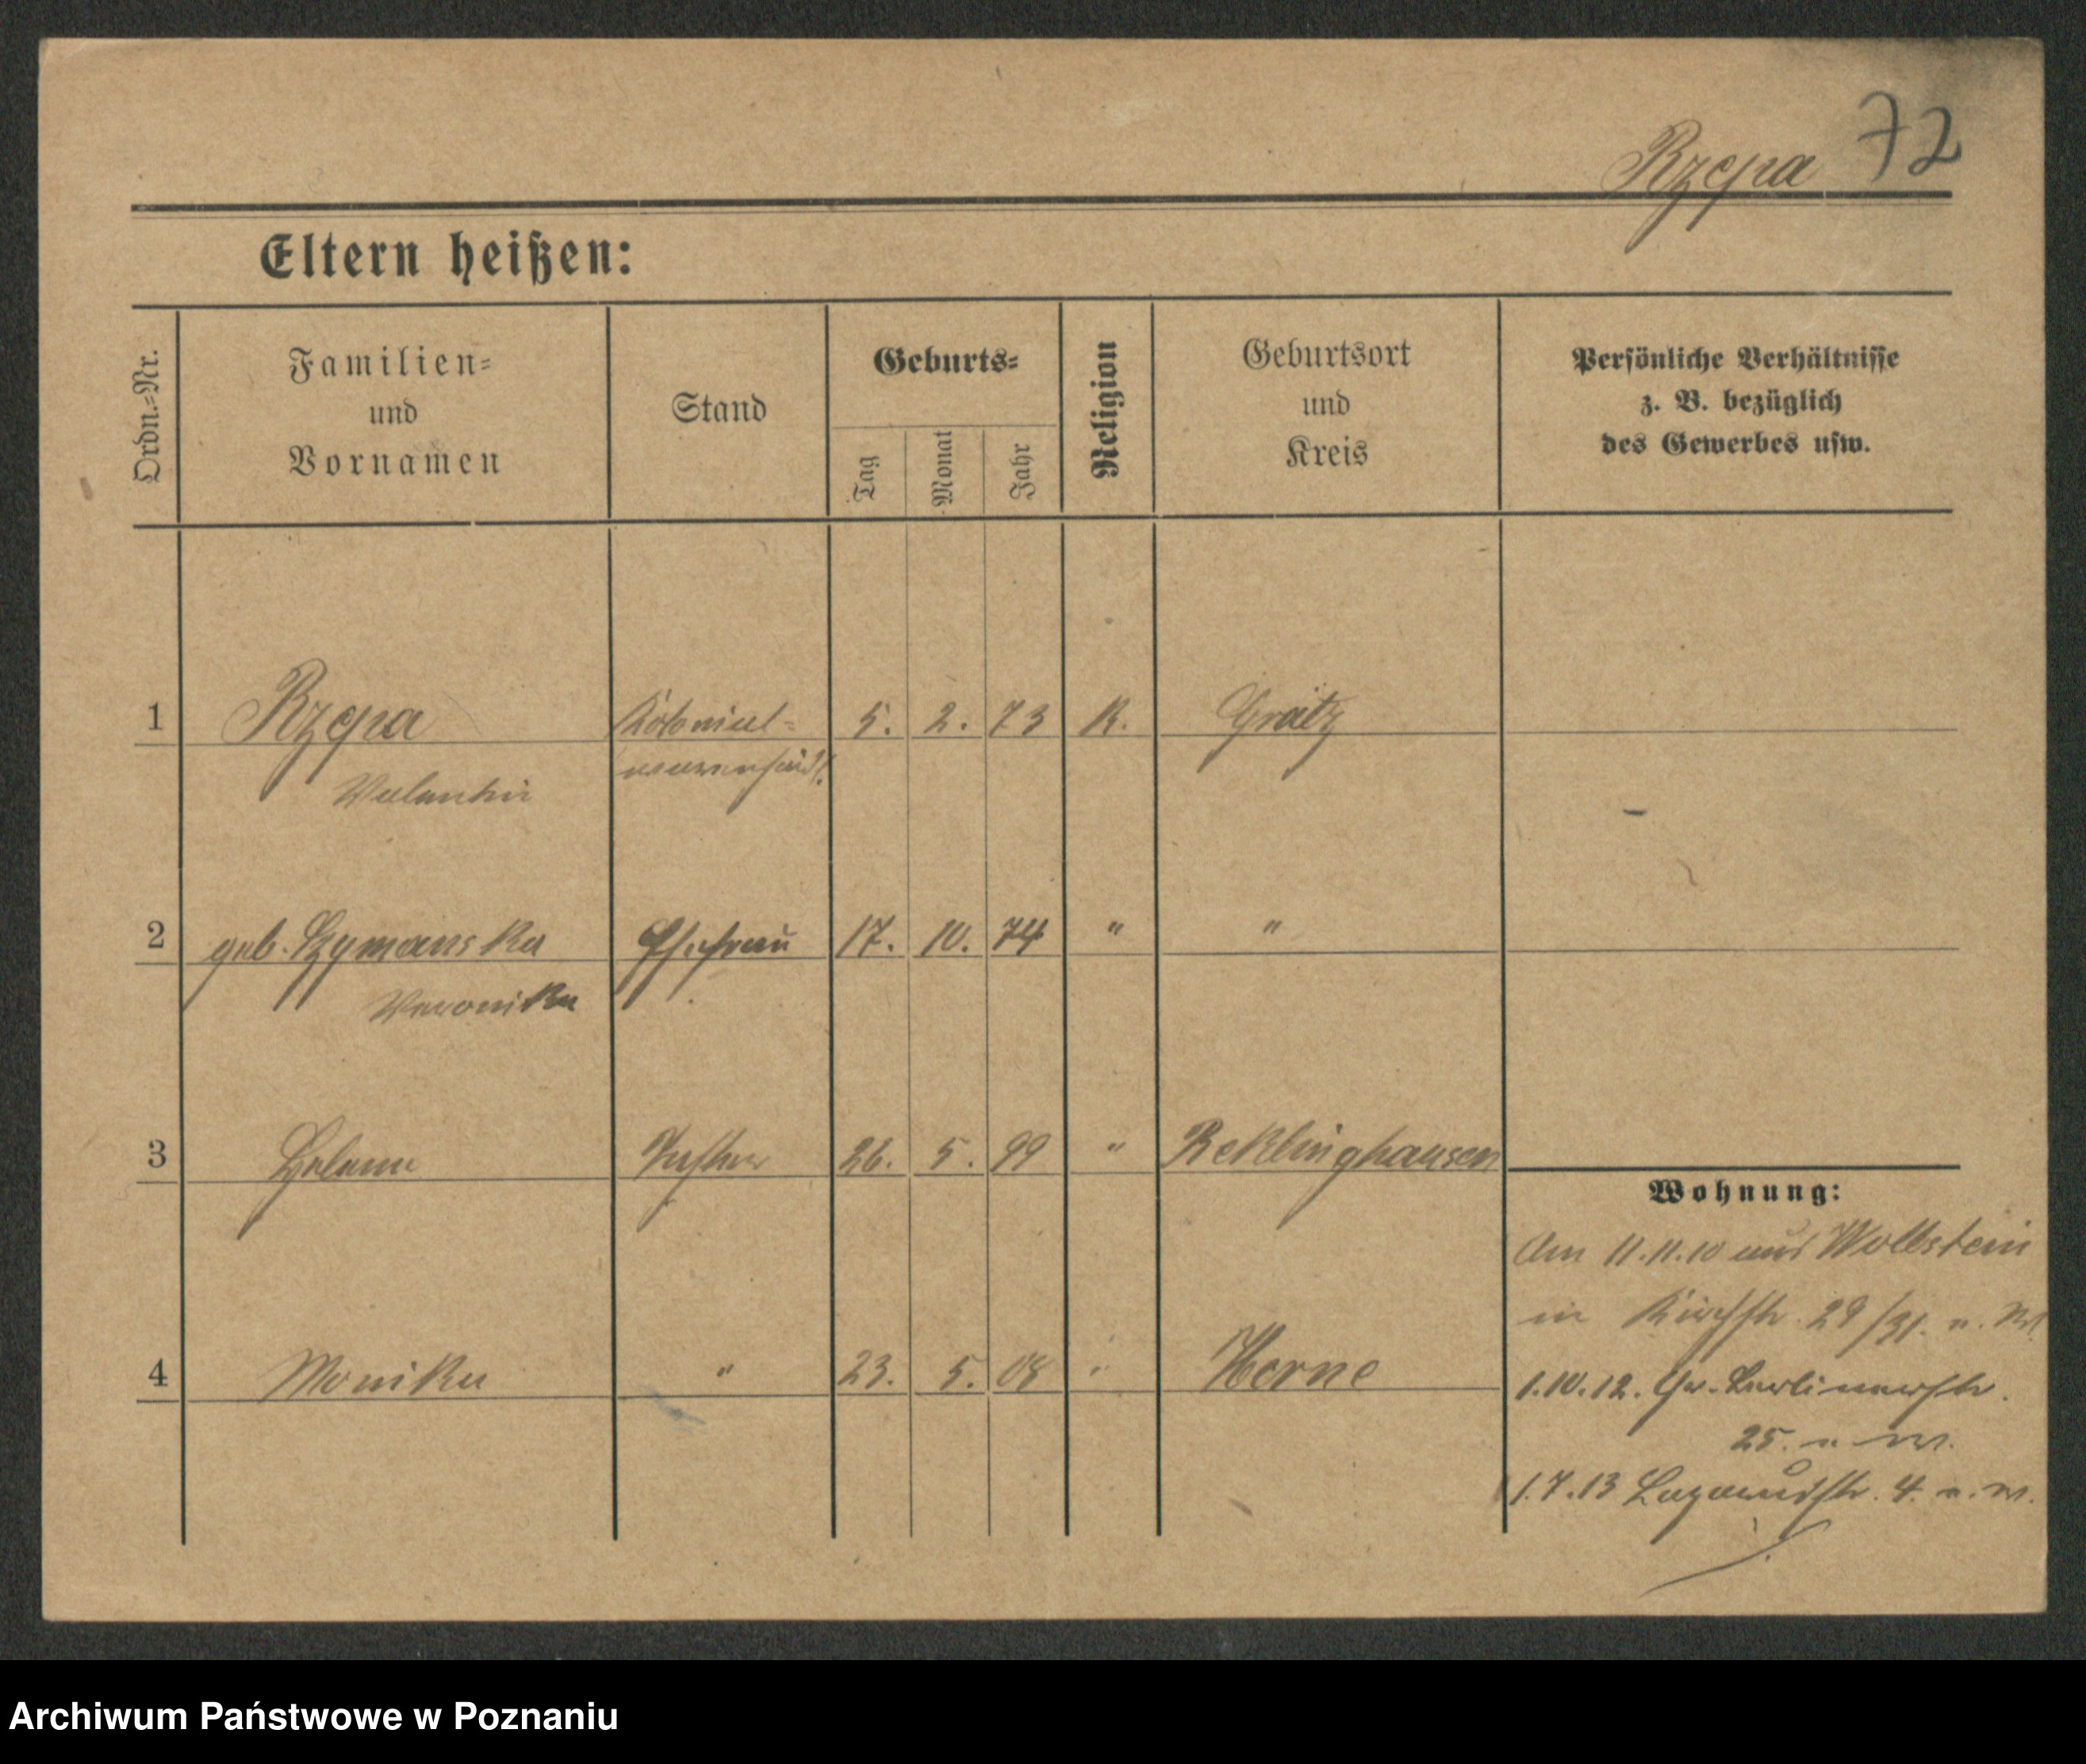 72
Rzepa
Eltern heißen:
Ordn.-Nr.
Familien-
und
Vornamen
Stand
Geburts-
Tag
Monat
Jahr
Religion
Geburtsort
und
Kreis
Persönliche Verhältnisse
z. B. bezüglich
des Gewerbes usw.
1 Rzepa Kolonial- 5. 2. 73 K. Grätz
Valentin
2 geb. Szymanska Ehefrau 17. 10. 74 " "
Veronika
3 Helene Tochter 26. 5. 99 " Reklinghausen
Wohnung:
Am 11.11.10 aus Wollstein
in 29/31.
4 Monika " 23. 5. 08 " Herne
1.10.12. Gr. Berlinerstr.
25.
1.7.13 4.
Archiwum Państwowe w Poznaniu